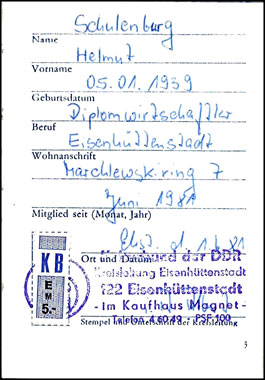 Schulenburg
Name
Helmut
Vorname
05.01.1939
Geburtsdatum
Diplomwirtschaftler
Beruf
Eisenhüttenstadt
Wohnanschrift
Marchlewskiring 7
Juni 1981
Mitglied seit (Monat, Jahr)
Ehst. d. 1.6.81
Ort und Datum
bund der DDR
Kreisleitung Eisenhüttenstadt
122 Eisenhüttenstadt
- Im Kaufhaus Magnet -
Telefon 4 60 49 · PSF 100
Stempel und Unterschrift der Kreisleitung
KB
E M
5.-
3